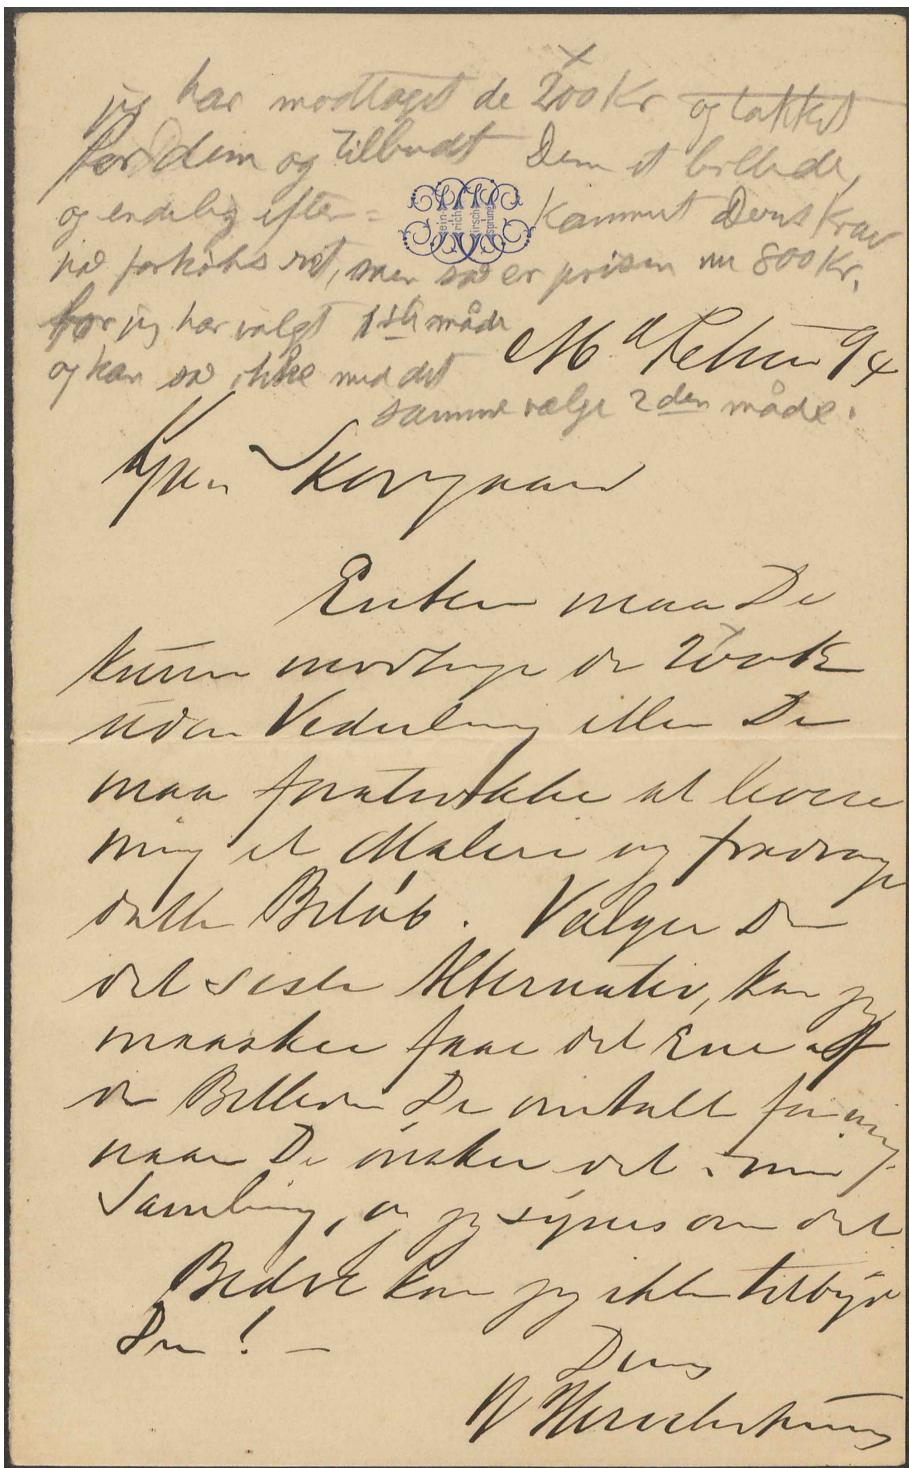 jeg har modtaget de 200 Kr og takket
for dem og tilbudt Dem et billede,
og endelig efter=kommet Deres Krav
på forkøbs ret, men så er prisen nu 800 Kr.
for jeg har valgt 1ste måde
og kan så ikke med det
samme vælge 2den måde.
Hein
rich
Hirsch
sprung
94
Skovgaard
Enten maa De
kunne modtage de 200 Kr
uden Vederlag eller De
maa foretrække at levere
mig et Maleri og fradrage
dette Beløb. Vælger De
det sidste Alternativ, kan jeg
maaskee faae det Ene af
de Billeder De omtalte for mig,
naar De ønsker det i min
Samling, og jeg synes om det
Bedre kan jeg ikke tilbyde
Dem! –
Deres
H Hirschsprung